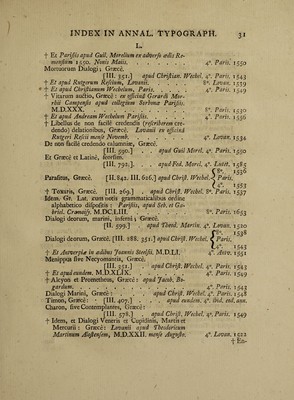 INDEX IN ANNAL. TYPOGRAPH. 31
L.
† Et Parisiis apud Guil. Morelium ex adverso ædis Re-
mensium 1550. Nonis Maiis. 4º. Paris. 1550
Mortuorum Dialogi; Græcè.
[III. 351.] apud Christian. Wechel. 4º. Paris. 1543
† Et apud Rutgerum Rescium, Lovanii. 8º. Lovan. 1550
† Et apud Christianum Wechelum, Paris. 4º. Paris. 1549
† Vitarum auctio, Græcè: ex officinâ Gerardi Mor-
rhii Campensis apud collegium Sorbonæ Parisiis.
M.D.XXX. 8º. Paris. 1530
† Et apud Andream Wechelum Parisiis. 4º. Paris. 1536
† Libellus de non facilè credendis (rescriberem cre-
dendo) delationibus, Græcè. Lovanii ex officinâ
Rutgeri Rescii mense Novemb. 4º. Lovan. 1534
De non facilè credendo calumniæ, Græcè.
[III. 590.] apud Guil. Morel. 4º. Paris. 1550
Et Græcè et Latinè, seorsim.
[III. 792.] apud Fed. Morel. 4º. Lutet. 1585
8º. 1536
Parasitus, Græcè. [II. 842. III. 626.] apud Christ. Wechel. Paris.
4º. 1553
† Toxaris, Græcè. [III. 269.] apud Christ. Wechel. 8º. Paris. 1537
Idem. Gr. Lat. cum notis grammaticalibus ordine
alphabetico dispositis: Parisiis, apud Seb. et Ga-
briel. Cramoisy, M.DC.LIII. 8º. Paris. 1653
Dialogi deorum, marini, inferni; Græcè.
[II. 599.] apud Theod. Martin. 4º. Lovan. 1520
8º. 1538
Dialogi deorum, Græcè. [III. 288. 351.] apud Christ. Wechel. Paris.
4º. 1545
† Et Antwerpiæ in ædibus Joannis Steelsii. M.D.LI. 4º. Antv. 1551
Menippus sive Necyomantia, Græcè.
[III. 351.] apud Christ. Wechel. 4º. Paris. 1543
† Et apud eundem. M.D.XLIX. 4º. Paris. 1549
† Alcyon et Prometheus, Græcè: apud Jacob. Bo-
gardum. 4º. Paris. 1543
Dialogi Marini, Græcè: apud Christ. Wechel. 4º. Paris. 1548
Timon, Græcè: [III. 407.] apud eundem. 4º. ibid. eod. ann.
Charon, sive Contemplantes, Græcè:
[III. 578.] apud Christ. Wechel. 4º. Paris. 1549
† Idem, et Dialogi Veneris et Cupidinis, Martis et
Mercurii: Græcè: Lovanii apud Theodoricum
Martinum Alostensem, M.D.XXII. mense Augusto. 4º. Lovan. 1522
† En-